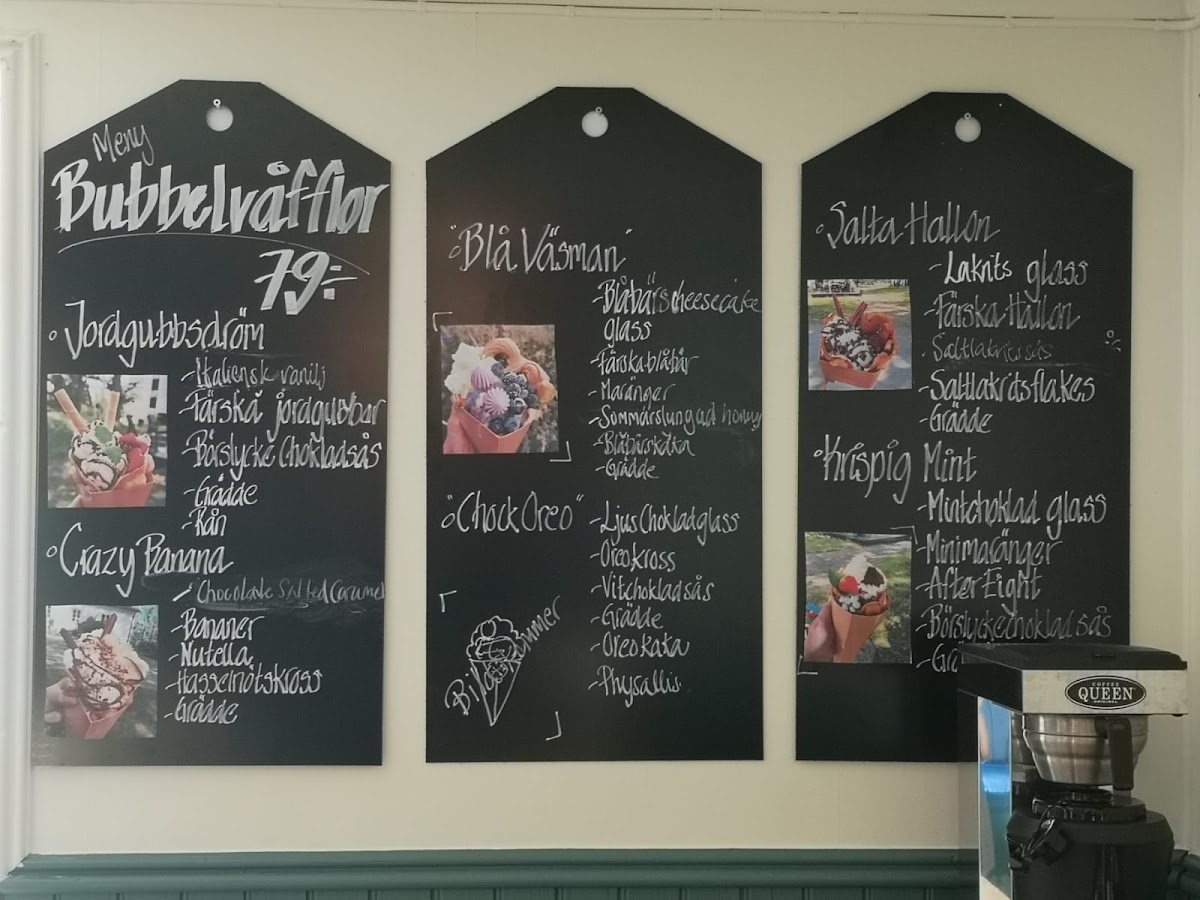 Meny
Bubbelvåfflor
79:-
Jordgubbsdröm
-Italiensk vanilj
-Färska jordgubbar
-Börslycke Chokladsås
-Grädde
-Rån
Crazy Banana
-Chocolate Salted Caramel
-Bananer
-Nutella
-Hasselnötskross
-Grädde
"Blå Väsman"
-Blåbärscheesecake
glass
-Färska blåbär
-Maränger
-Sommarslungad honung
-Blåbärskaka
-Grädde
"Chock Oreo"
-Ljus Chokladglass
-Oreokross
-Vitchokladsås
-Grädde
-Oreokaka
-Physallis
Bild kommer
Salta Hallon
-Lakrits glass
-Färska Hallon
Saltlakritssås
-Saltlakritsflakes
-Grädde
Krispig Mint
-Mintchoklad glass
-Minimaränger
-After Eight
-Börslyckechokladsås
COFFEE
QUEEN
ORIGINAL